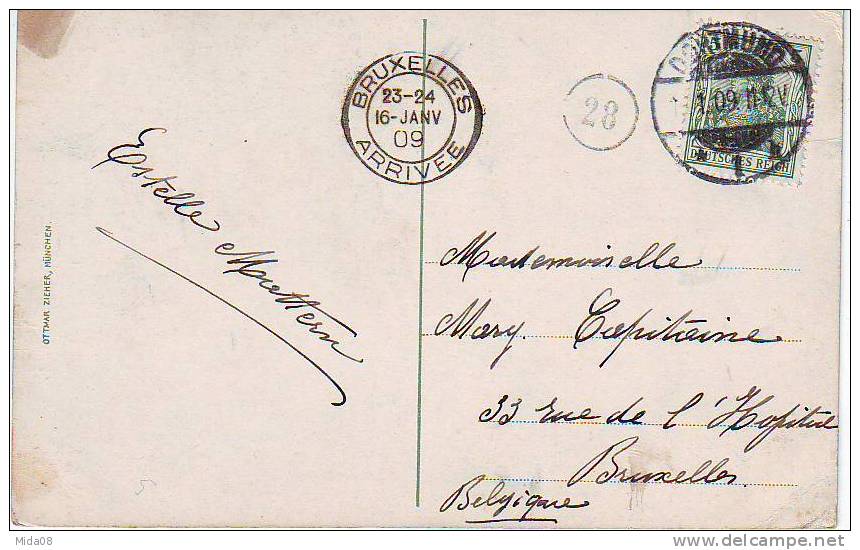 BRUXELLES
23-24
16-JANV
09
ARRIVEE
28
DORTMUND
1.09.11-12V
DEUTSCHES REICH
Estelle Mattern
OTTMAR ZIEHER, MÜNCHEN.
Mademoiselle
Mary. Capitaine
33 rue de l'Hopital
Bruxelles.
Belgique
5
Mida08
www.delcampe.net